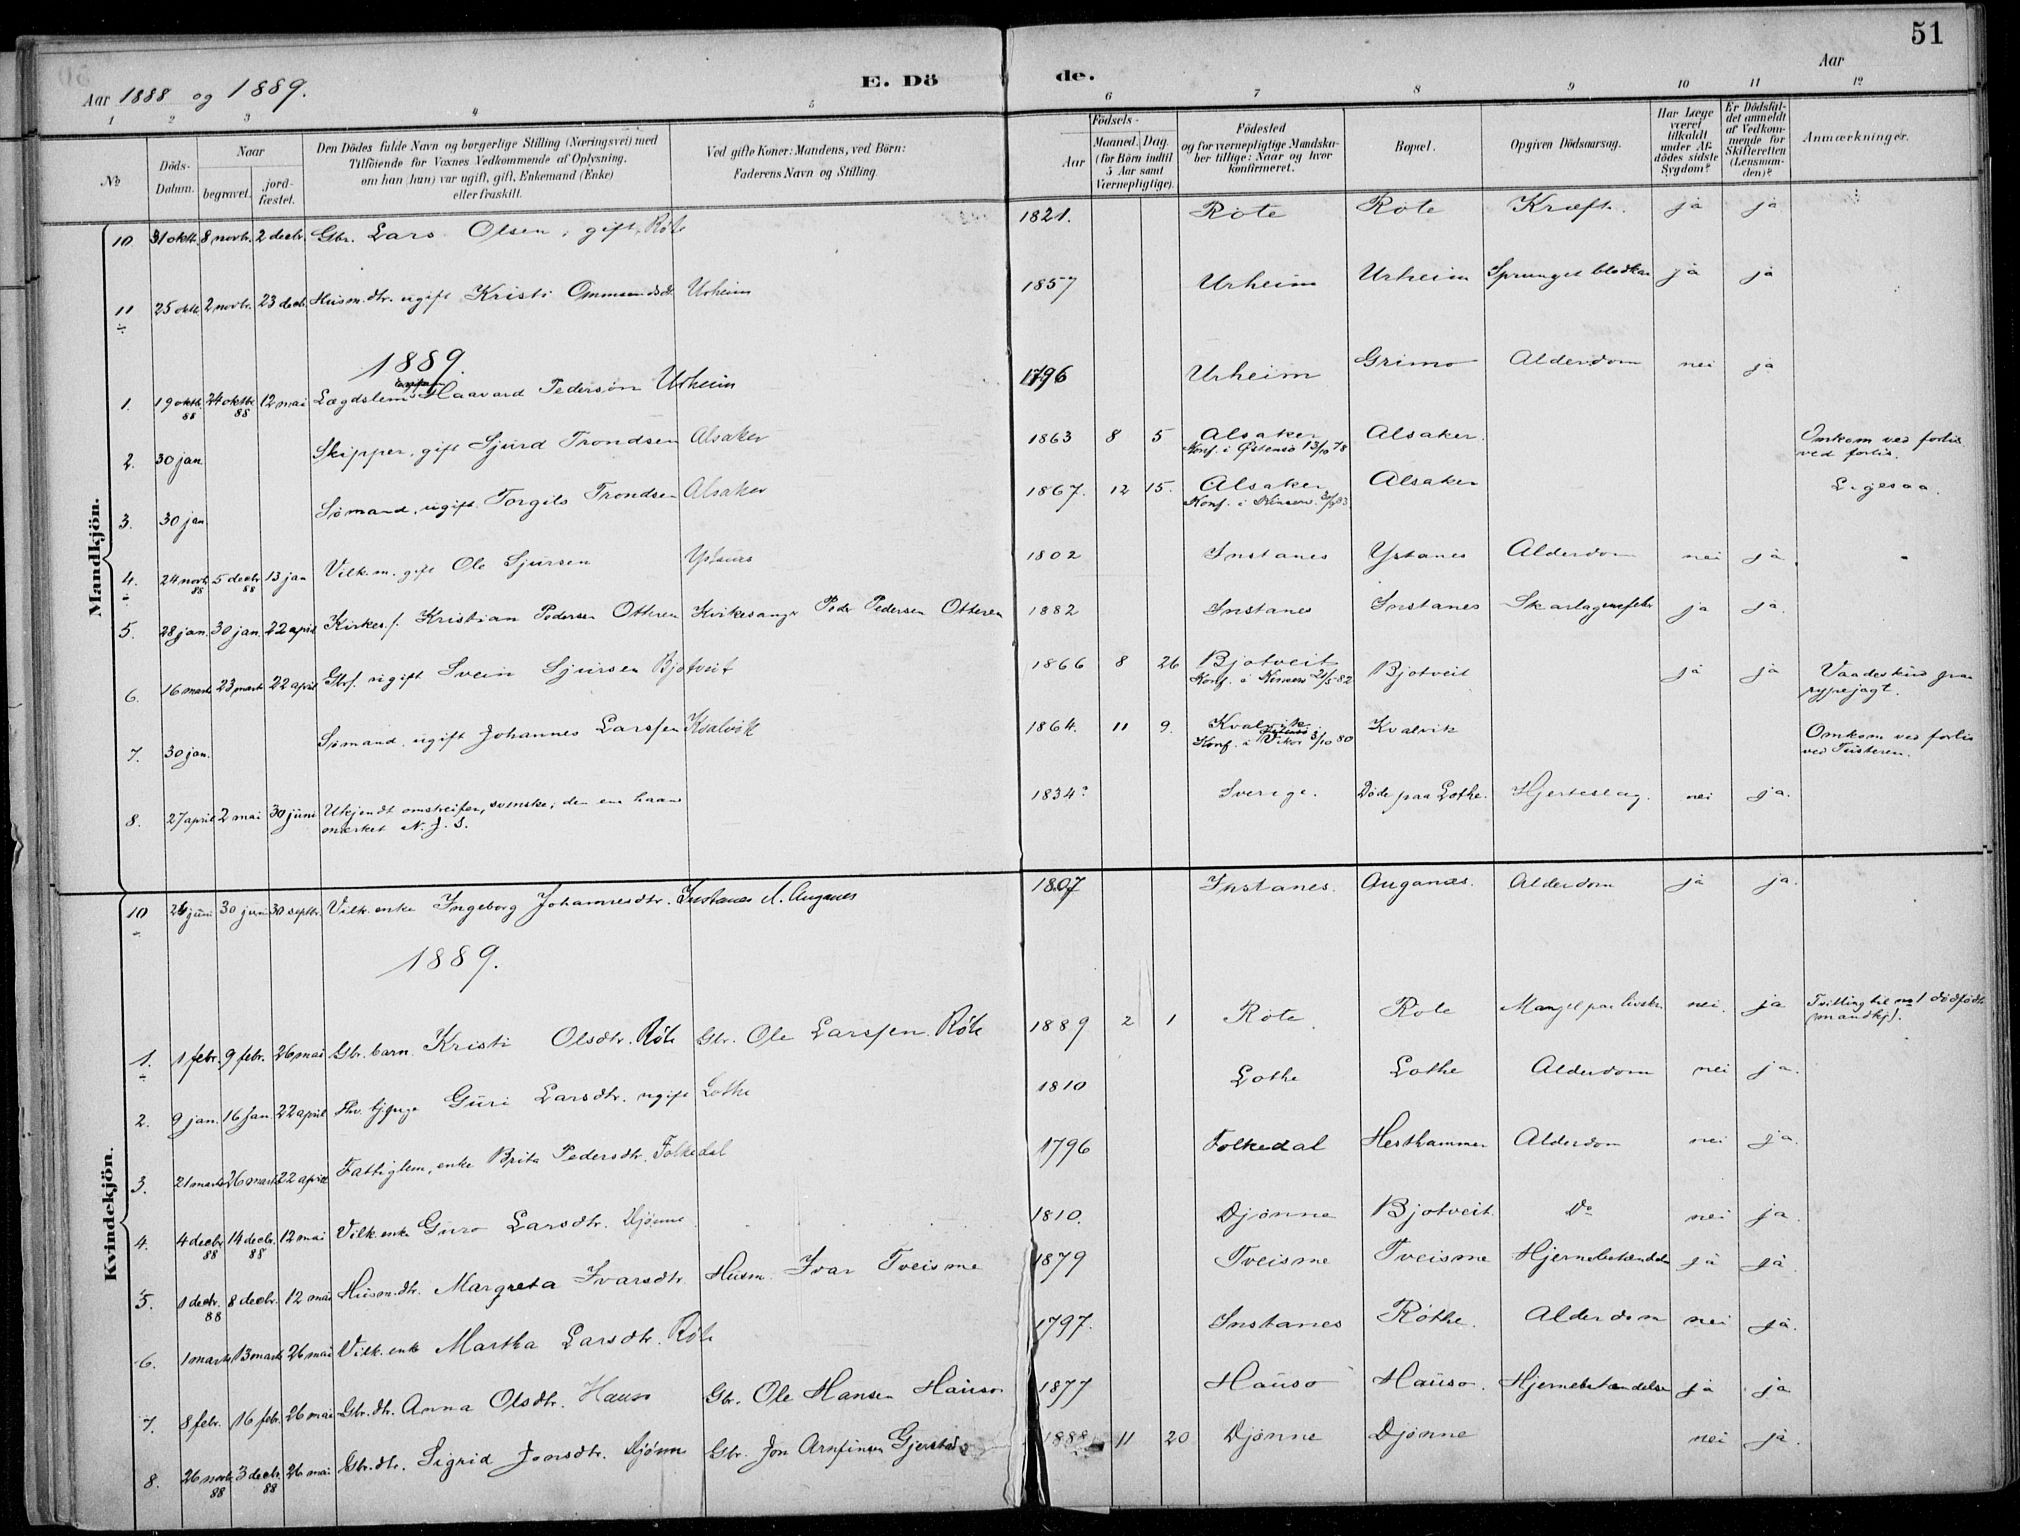 51
Aar 1888 og 1889.
E. Döde.
Aar
1 2 3 4 5 6 7 8 9 10 11 12
No
Döds-Datum.
Naar
begravet.
jord-fæstet.
Den Dödes fulde Navn og borgerlige Stilling (Næringsvei) med
Tilföiende for Voxnes Vedkommende af Oplysning,
om han (hun) var ugift, gift, Enkemand (Enke)
eller fraskilt.
Ved gifte Koner: Mandens, ved Börn:
Faderens Navn og Stilling.
Födsels-
Aar
Maaned. Dag.
(for Börn indtil
5 Aar samt
Værnepligtige).
Födested
og for værnepligtige Mandska-
ber tillige: Naar og hvor
konfirmeret.
Bopæl.
Opgiven Dödsaarsag.
Har Læge
været
tilkaldt
under Af-
dödes sidste
Sygdom?
Er Dödsfal-
det anmeldt
af Vedkom-
mende for
Skifteretten
(Lensman-
den)?
Anmærkninger.
Mandkjön.
10 31 oktb. 8 novbr. 2 decbr. Gbr. Lars Olsen, gift, Röte 1821. Röte Röte Kræft. ja ja
11 25 oktb. 2 novbr. 23 decb. Husm.dtr. ugift Kristi Ommundsdt. Urheim 1857 Urheim Urheim Sprunget blodkar ja ja
1889.
1. 19 oktb. 88 24 oktbr 88 12 mai Lægdslem Haavard Pedersön Urheim 1796 Urheim Grimo Alderdom nei ja
2. 30 jan. Skipper, gift Sjurd Trondsen Alsaker 1863 8 5 Alsaker Alsaker. Omkom ved forlis
Konf. i Östensö 13/10 78 ved forlis.
3. 30 jan. Sömand, ugift Torgils Trondsen Alsaker 1867. 12 15. Alsaker Alsaker Ligesaa.
Konf. i Kinserv
4. 24 novb. 88 5 decbr. 88 13 jan Vilk.m. gift Ole Sjursen 1802 Instanes Ystanes Alderdom nei ja
5. 28 jan. 30 jan. 22 april Kirkes.f. Kristian Pedersen Otteren Kirkesanger Peder Pedersen Otteren 1882 Instanes Instanes Skarlagensfeber ja ja.
6. 16 marts 23 marts 22 april Gbrf. ugift Svein Sjursen Bjotveit 1866 8 26 Bjotveit Bjotveit ja ja Vaadeskud paa
Konf. i Kinserv 21/5 82 rypejagt.
7. 30 jan. Sömand, ugift Johannes Larssen Kvalvik 1864. 11 9. Kvalvik Kvalvik Omkom ved forlis
Konf. i Vikör 3/10 80 ved Tusteren.
8. 27 april 2 mai 30 juni Ukjendt omstreifer, svenske; den ene haand 1834? Sverige. Döde paa Lothe. Hjerteslag. nei ja.
mærket N. J. S.
10 26 juni 30 juni 30 septbr. Vilk. enke Ingeborg Johannesdtr. Instanes 1807 Instanes. Auganes. Alderdom ja ja.
1889.
Kvindekjön.
1. 1 febr. 9 febr. 26 mai Gbr. barn Kristi Olsdtr. Röte Gbr. Ole Larssen Röte 1889 2 1 Röte Röte Mangel paa livskr. nei. ja Tvilling til no 1 dödfödte
(mandkj).
2. 9 jan. 16 jan. 22 april Guri Larsdtr. ugift Lothe 1810 Lothe Lothe Alderdom nei ja.
3. 21 marts 26 marts 22 april Fattiglem, enke Brita Pedersdtr. Folkedal 1796 Folkedal Hesthammer Alderdom nei ja.
4. 4 decbr 88 14 decbr. 88 12 mai Vilk. enke Guro Larsdtr. Djönne 1810. Djönne Bjotveit Do nei ja.
5. 1 decbr. 88 8 decbr. 12 mai Husm.dtr. Margreta Ivarsdtr. Husm. Ivar Tveisme 1879 Tveisme Tveisme Hjernebetændelse ja ja.
6. 1 marts 13 marts 26 mai Vilk. enke Martha Larsdtr. Röte 1797. Instanes Röthe. Alderdom nei ja.
7. 8 febr. 16 febr. 26 mai Gbr.dtr. Anna Olsdtr. Hauso Gbr. Ole Hansen Hauso 1877 Hauso Hauso. Hjernebetændelse ja ja
8. 26 novb. 88 3 decbr. 88 26 mai Gbr.dtr. Sigrid Jonsdtr. Djönne Gbr. Jon Arnfinsen Gjerstad 1888 11 20 Djönne Djönne nei ja.